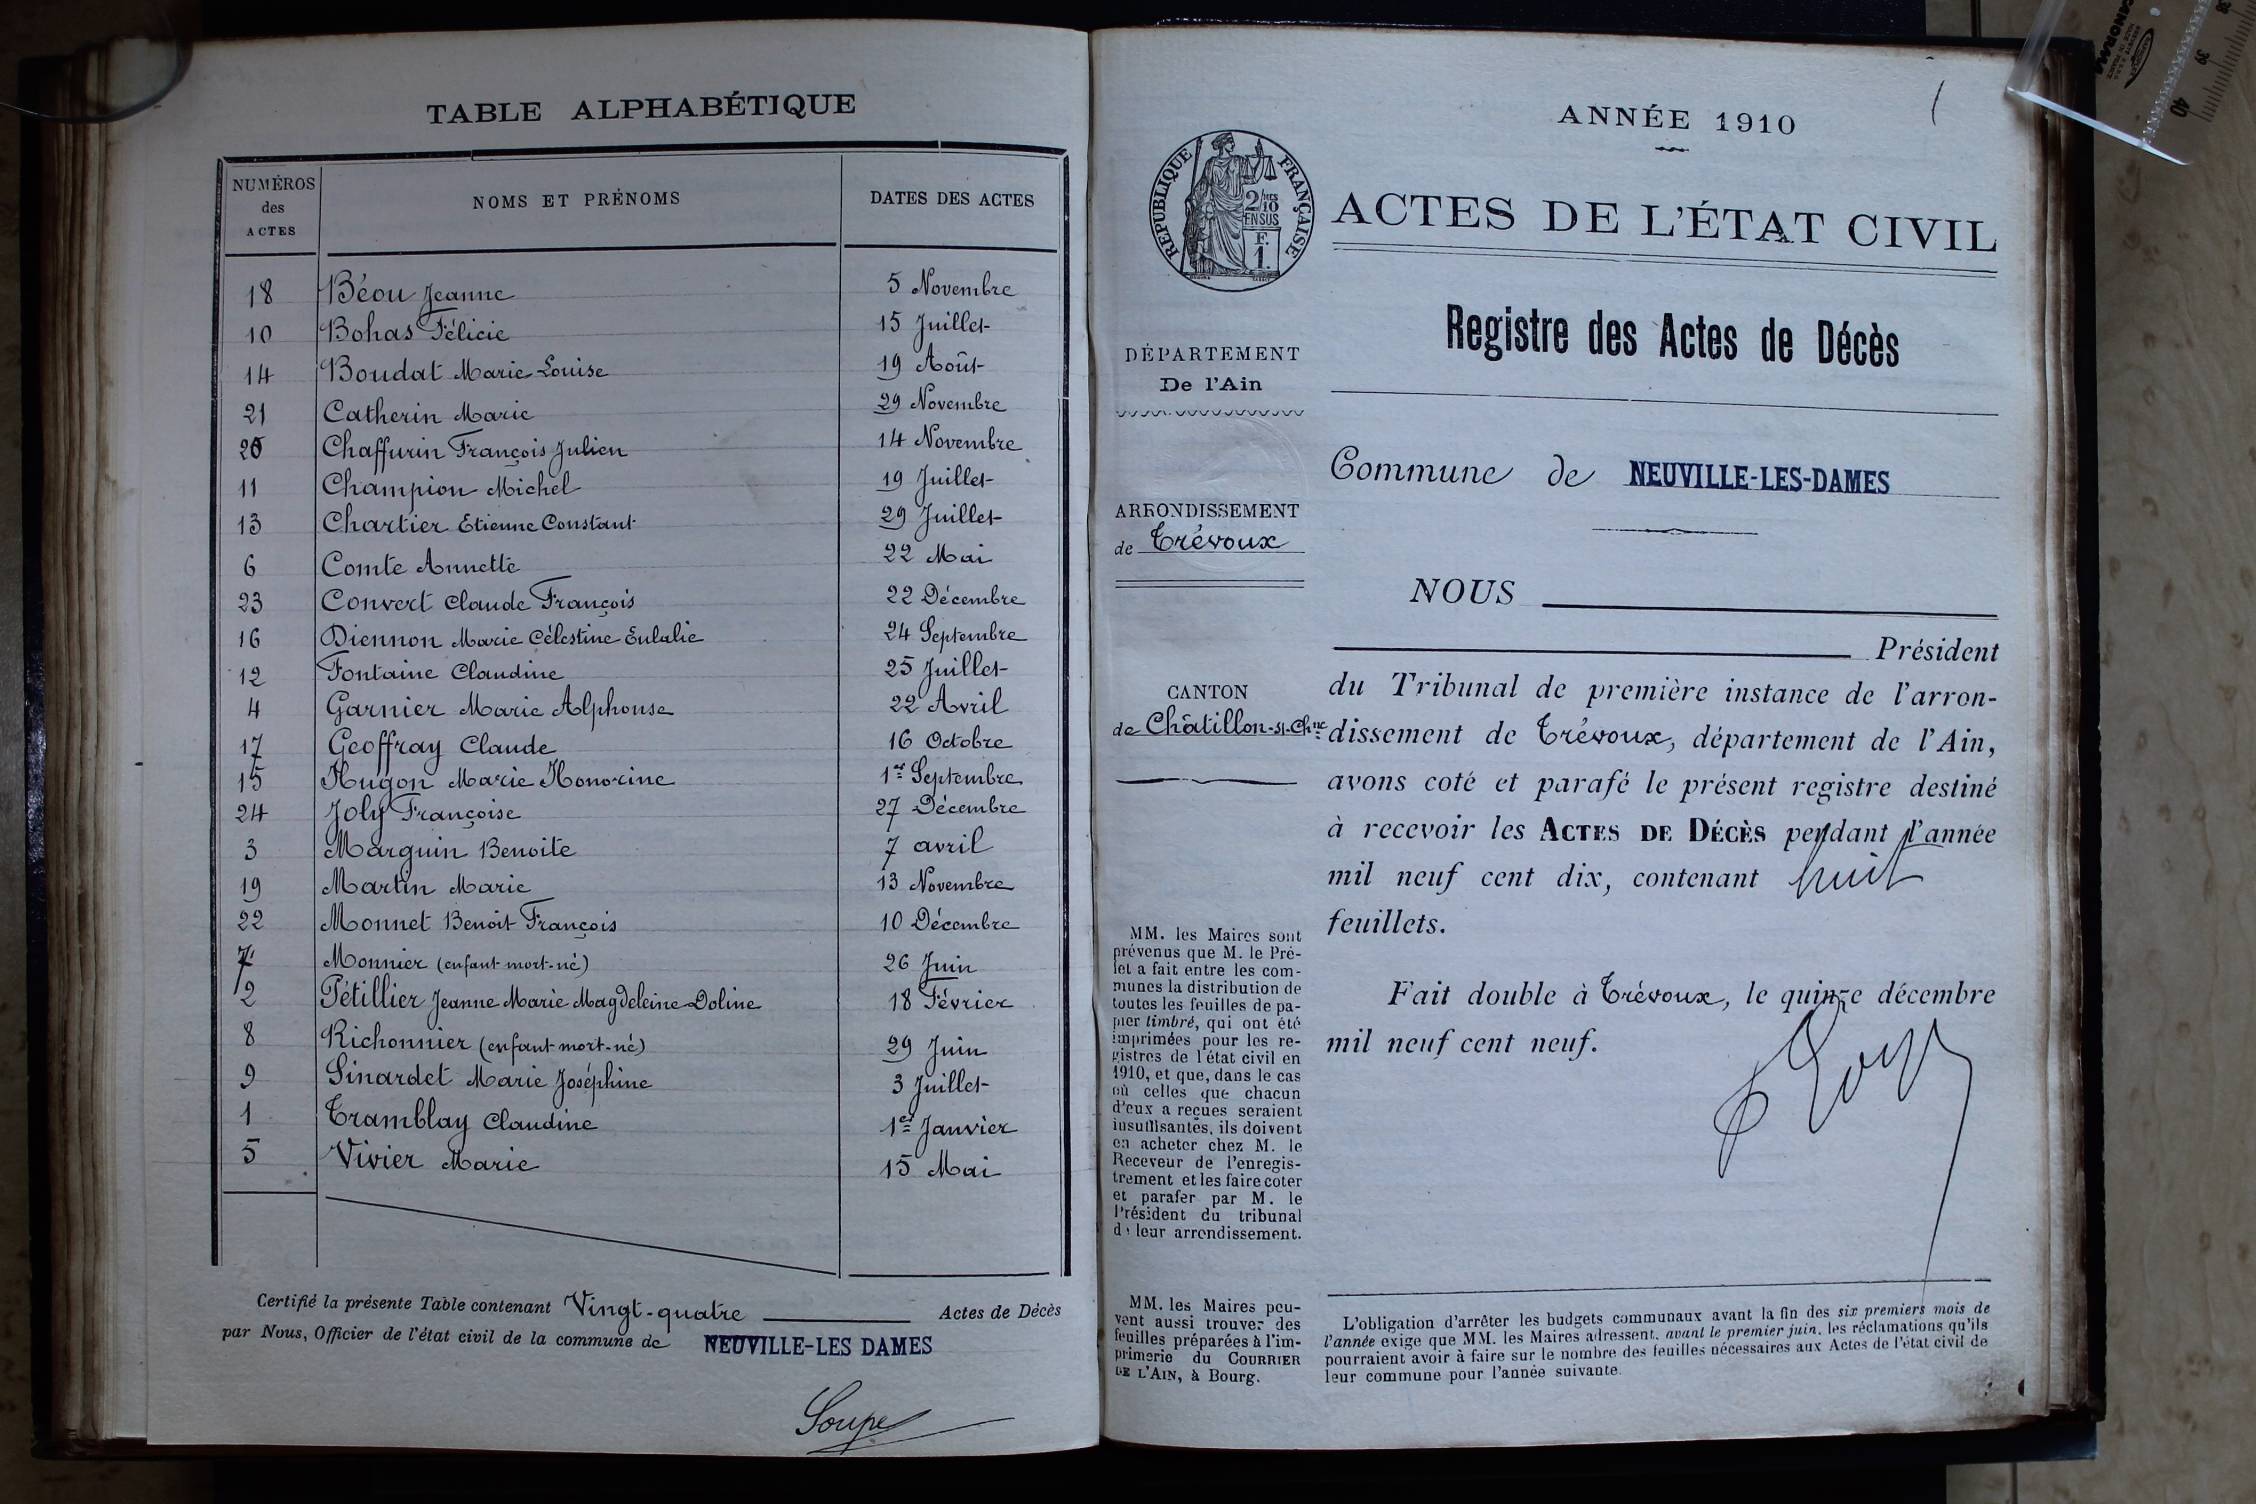 TABLE ALPHABÉTIQUE
NUMÉROS des ACTES
NOMS ET PRÉNOMS
DATES DES ACTES
18 Béou Jeanne 5 Novembre
10 Bohas Félicie 15 Juillet
14 Boudat Marie Louise 19 Août
21 Catherin Marie 29 Novembre
20 Chaffurin François Julien 14 Novembre
11 Champion Michel 19 Juillet
13 Chartier Etienne Constant 29 Juillet
6 Comte Annette 22 Mai
23 Convert Claude François 22 Décembre
16 Diennon Marie Célestine Eulalie 24 Septembre
12 Fontaine Claudine 25 Juillet
4 Garnier Marie Alphonse 22 Avril
17 Geoffray Claude 16 Octobre
15 Hugon Marie Honorine 1er Septembre
24 Joly Françoise 27 Décembre
3 Marguin Benoite 7 avril
19 Martin Marie 13 Novembre
22 Monnet Benoit François 10 Décembre
7 Monnier (enfant mort-né) 26 Juin
2 Pétillier Jeanne Marie Magdeleine Doline 18 Février
8 Richonnier (enfant mort-né) 29 Juin
9 Sinardet Marie Joséphine 3 Juillet
1 Tramblay Claudine 1er Janvier
5 Vivier Marie 15 Mai
Certifié la présente Table contenant Vingt-quatre Actes de Décès
par Nous, Officier de l'état civil de la commune de NEUVILLE-LES DAMES
Soupe
ANNÉE 1910
RÉPUBLIQUE FRANÇAISE
2/10 MES
EN SUS
F.
1.
ACTES DE L'ÉTAT CIVIL
Registre des Actes de Décès
DÉPARTEMENT
De l'Ain
Commune de NEUVILLE-LES-DAMES
ARRONDISSEMENT
de Trévoux
CANTON
de Châtillon-s/-Chne
NOUS
Président
du Tribunal de première instance de l'arron-
dissement de Trévoux, département de l'Ain,
avons coté et parafé le présent registre destiné
à recevoir les ACTES DE DÉCÈS pendant l'année
mil neuf cent dix, contenant huit
feuillets.
Fait double à Trévoux, le quinze décembre
mil neuf cent neuf.
MM. les Maires sont
prévenus que M. le Pré-
fet a fait entre les com-
munes la distribution de
toutes les feuilles de pa-
pier timbré, qui ont été
imprimées pour les re-
gistres de l'état civil en
1910, et que, dans le cas
où celles que chacun
d'eux a reçues seraient
insuffisantes, ils doivent
en acheter chez M. le
Receveur de l'enregis-
trement et les faire coter
et parafer par M. le
Président du tribunal
de leur arrondissement.
MM. les Maires peu-
vent aussi trouver des
feuilles préparées à l'im-
primerie du COURRIER
DE L'AIN, à Bourg.
L'obligation d'arrêter les budgets communaux avant la fin des six premiers mois de
l'année exige que MM. les Maires adressent, avant le premier juin, les réclamations qu'ils
pourraient avoir à faire sur le nombre des feuilles nécessaires aux Actes de l'état civil de
leur commune pour l'année suivante.
38
39
40